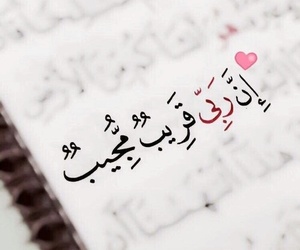 إِنَّ رَبِّيَّ قَرِيبٌ مُّجِيبٌ